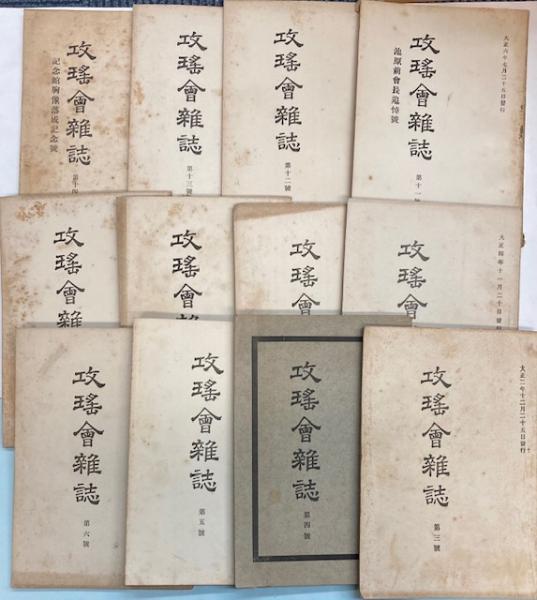 大正六年七月二十五日發行
攻瑤會雜誌
池原前會長追悼號
第十一號
攻瑤會雜誌
第十二號
攻瑤會雜誌
第十三號
攻瑤會雜誌
記念館胸像落成記念號
第十四
大正四年十一月二十日發行
攻瑤會
攻瑤會
攻瑤會雜
攻瑤會雜
大正二年十二月二十五日發行
攻瑤會雜誌
第三號
攻瑤會雜誌
第四號
攻瑤會雜誌
第五號
攻瑤會雜誌
第六號